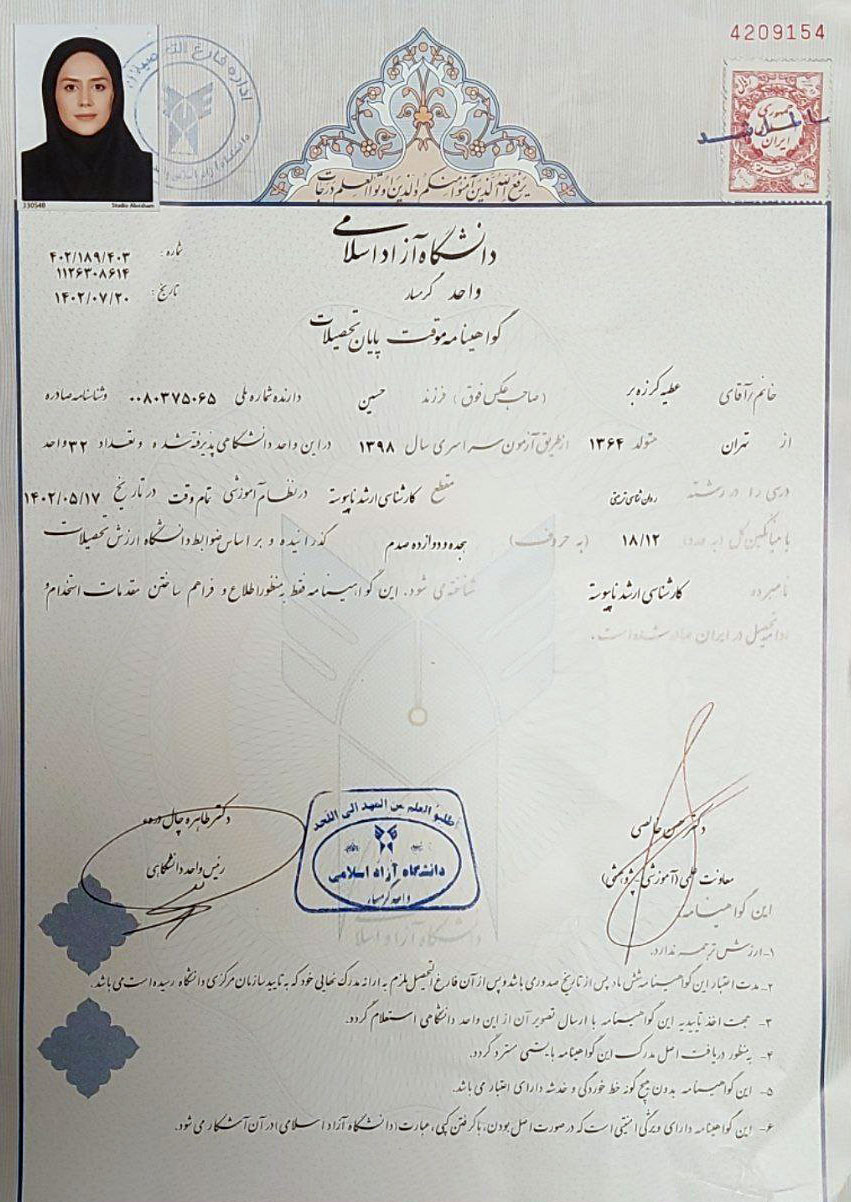 4209154
اداره فارغ التحصیلان
جمهوری
ایران
باطل شد
330548
Studio Abrisham
یرفع الله الذین آمنوا منکم والذین اوتوا العلم درجات
دانشگاه آزاد اسلامی
واحد گرمسار
شماره: ۴۰۲/۱۸۹/۴۰۳
۱۱۲۶۳۰۸۶۱۴
تاریخ: ۱۴۰۲/۰۷/۲۰
گواهینامه موقت پایان تحصیلات
خانم/آقای عطیه گرزه بر (صاحب عکس فوق) فرزند حسین دارنده شماره ملی ۰۰۸۰۳۷۵۰۶۵ و شناسنامه صادره
از تهران متولد ۱۳۶۴ از طریق آزمون سراسری سال ۱۳۹۸ در این واحد دانشگاهی پذیرفته شده و تعداد ۳۲ واحد
درسی را در رشته روان شناسی تربیتی مقطع کارشناسی ارشد ناپیوسته در نظام آموزشی تمام وقت در تاریخ ۱۴۰۲/۰۵/۱۷
با میانگین کل (به عدد) ۱۸/۱۲ (به حروف) هجده و دوازده صدم گذرانیده و بر اساس ضوابط دانشگاه ارزش تحصیلات
نامبرده کارشناسی ارشد ناپیوسته شناخته می شود. این گواهینامه فقط به منظور اطلاع و فراهم ساختن مقدمات استخدام و
ادامه تحصیل در ایران صادر شده است.
دکتر محسن خالصی
معاونت علمی (آموزشی-پژوهشی)
اطلبو العلم من المهد الی اللحد
دانشگاه آزاد اسلامی
واحد گرمسار
دکتر طاهره چال
رئیس واحد دانشگاهی
دانشگاه آزاد اسلا
این گواهینامه:
۱- ارزش ترجمه ندارد.
۲- مدت اعتبار این گواهینامه شش ماه پس از تاریخ صدور می باشد و پس از آن فارغ التحصیل ملزم به ارائه مدرک نهایی خود که به تایید سازمان مرکزی دانشگاه رسیده است می باشد.
۳- جهت اخذ تاییدیه این گواهینامه با ارسال تصویر آن از این واحد دانشگاهی استعلام گردد.
۴- به منظور دریافت اصل مدرک این گواهینامه بایستی مسترد گردد.
۵- این گواهینامه بدون هیچ گونه خط خوردگی و خدشه دارای اعتبار می باشد.
۶- این گواهینامه دارای ویژگی امنیتی است که در صورت اصل بودن، با گرفتن کپی، عبارت (دانشگاه آزاد اسلامی) در آن آشکار می شود.